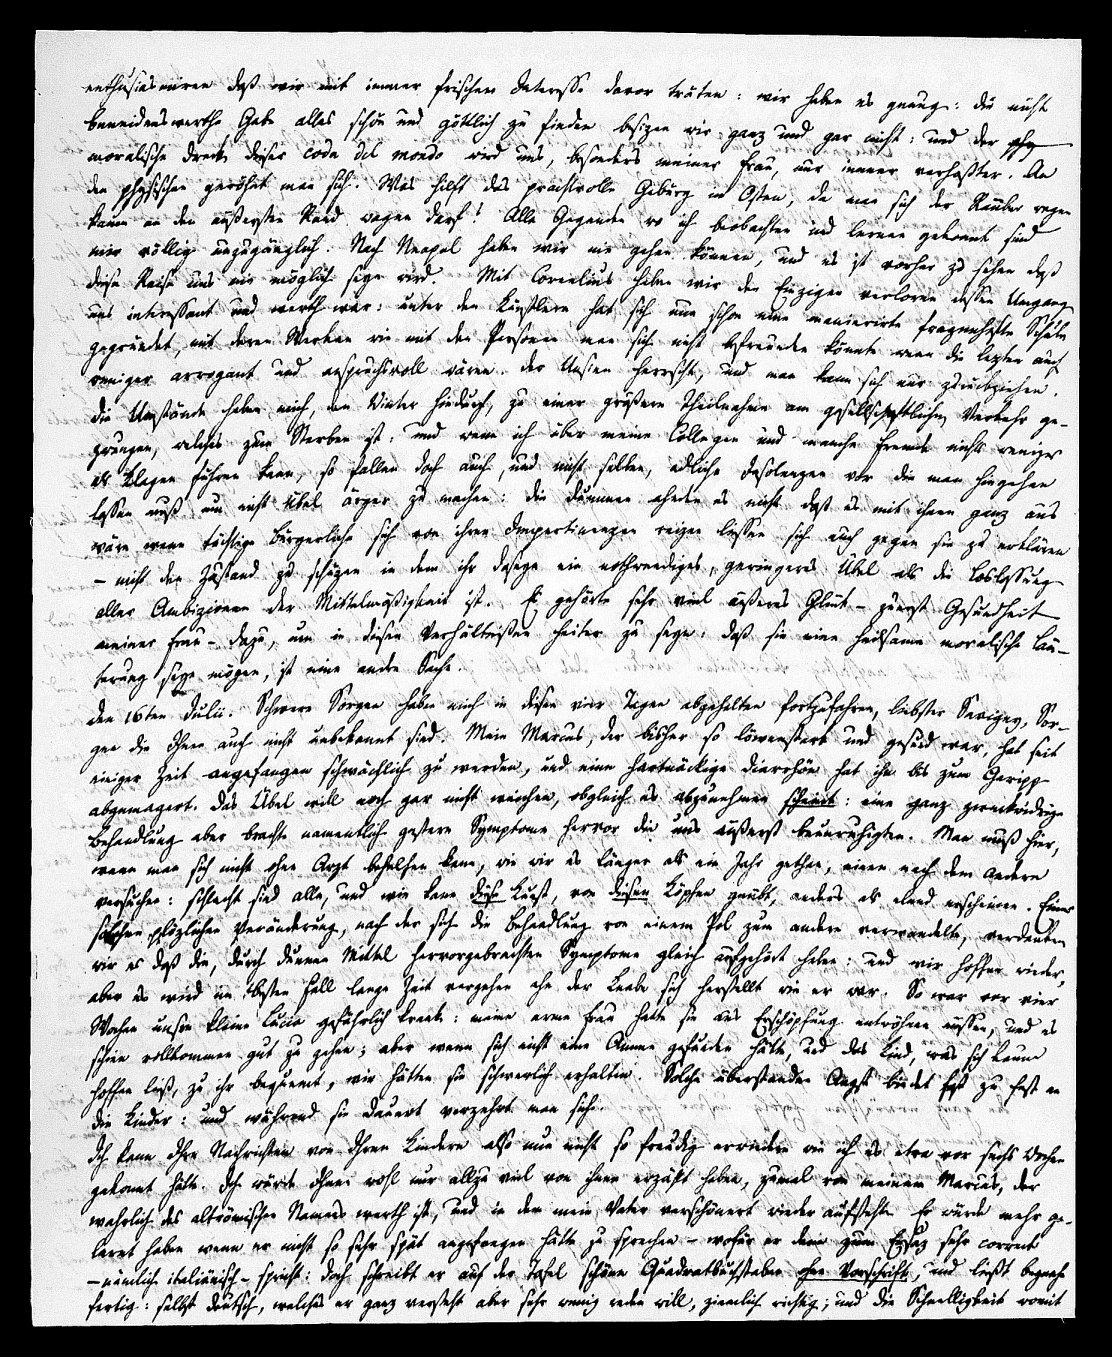 enthusiasmiren daß wir mit immer frischem Interesse davor träten: wir haben es genug: die nicht
beneidenswerthe Gabe alles schön und göttlich zu finden besizen wir ganz und gar nicht: und der phy
moralische Dreck dieser coda del mondo wird uns, besonders meiner Frau, nur immer verhaßter. An
den physischen gewöhnt man sich. Was hilft das prachtvolle Gebürg in Osten, da man sich der Räuber wegen
kaum an den äußersten Rand wagen darf! Alle Gegenden wo ich beobachten und lernen gekonnt sind
mir völlig unzugänglich. Nach Neapel haben wir nie gehen können, und es ist vorher zu sehen daß
diese Reise uns nie möglich seyn wird. Mit Cornelius haben wir den Einzigen verloren dessen Umgang
uns interessant und werth war: unter den Künstlern hat sich nun schon eine manierirte frazenhafte Schule
gegründet, mit deren Werken wie mit den Personen man sich nicht befreunden könnte wenn die lezten auch
weniger arrogant und anspruchsvoll wären. Der Unsinn herrscht, und man kann sich nur zurückziehen.
Die Umstände haben mich, den Winter hindurch, zu einer größeren Theilnahme am gesellschaftlichen Verkehr ge-
zwungen, welches zum Sterben ist. und wenn ich über meine Collegen und manche Fremde nichts weniger
als Klagen führen kann, so fallen doch auch, und nicht selten, adliche Insolenzen vor die man hingehen
lassen muß um nicht Übel ärger zu machen: die dummen ahnden es nicht daß es mit ihnen ganz aus
wäre wenn tüchtige Bürgerliche sich von ihren Impertinenzen reizen lassen sich auch gegen sie zu erklären
– nicht den Zustand zu schüzen in dem ihr Daseyn ein nothwendiges, geringeres Übel als die Loslassung
aller Ambizionen der Mittelmäßigkeit ist. Es gehörte sehr viel äußeres Glück – zuerst Gesundheit
meiner Frau – dazu, um in diesen Verhältnissen heiter zu seyn: daß sie eine heilsame moralische Läu-
terung seyn mögen, ist eine andre Sache.
den 16ten Julii. Schwere Sorgen haben mich in diesen vier Tagen abgehalten fortzufahren, liebster Savigny, Sor-
gen die Ihnen auch nicht unbekannt sind. Mein Marcus, der bisher so löwenstark und gesund war, hat seit
einiger Zeit angefangen schwächlich zu werden, und eine hartnäckige Diarrhöe hat ihn bis zum Geripp
abgemagert. Das Übel will noch gar nicht weichen, obgleich es abzunehmen scheint: eine ganz zweckwidrige
Behandlung aber brachte namentlich gestern Symptome hervor die uns äußerst beunruhigten. Man muß hier,
wenn man sich nicht ohne Arzt behelfen kann, wie wir es länger als ein Jahr gethan, einen nach dem andern
versuchen: schlecht sind alle, und wie kann diese Kunst, von diesen Köpfen geübt, anders als elend erscheinen. Einer
solchen plözlichen Veränderung, nach der sich die Behandlung von einem Pol zum andern verwandelte, verdanken
wir es daß die, durch dummen Mittel hervorgebrachten Symptome gleich aufgehört haben: und wir hoffen wieder,
aber es wird im besten Fall lange Zeit vergehen ehe der Knabe sich herstellt wie er war. So war vor vier
Wochen unsre kleine Lucia gefährlich krank: meine arme Frau hatte sie aus Erschöpfung entwöhnen müssen, und es
schien vollkommen gut zu gehen; aber wenn sich nicht eine Amme gefunden hätte, und das Kind, was sich kaum
hoffen ließ, zu ihr bequemt, wir hätten sie schwerlich erhalten. Solche überstandene Angst bindet fast zu fest an
die Kinder: und während sie dauert verzehrt man sich.
Ich kann Ihre Nachrichten von Ihren Kindern also nun nicht so freudig erwiedern wie ich es etwa vor sechs Wochen
gekonnt hätte. Ich würde Ihnen wohl nur allzu viel von ihnen erzählt haben, zumal von meinem Marcus, der
wahrlich des altrömischen Namens werth ist, und in dem mein Vater verschönert wieder aufsteht. Er würde mehr ge-
lernt haben wenn er nicht so sehr spät angefangen hätte zu sprechen – wofür er denn zum Ersaz sehr correct
– nämlich italiänisch – spricht: doch schreibt er auf der Tafel schöne Quadratbuchstaben ohne Vorschrift, und liest beynahe
fertig: selbst deutsch, welches er ganz versteht aber sehr wenig reden will, ziemlich richtig; und die Schnelligkeit womit